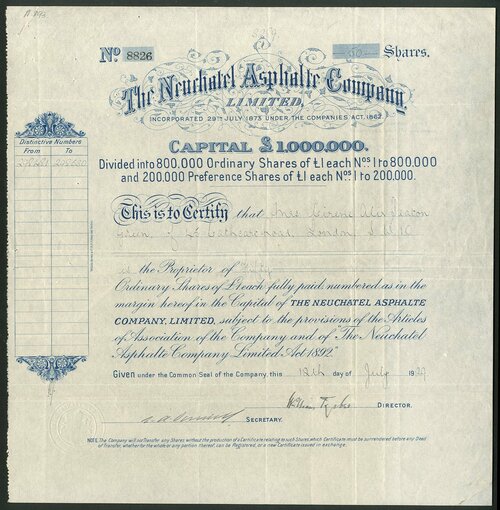 No 8826
50 Shares.
The Neuchatel Asphalte Company,
LIMITED,
INCORPORATED 29TH JULY 1873 UNDER THE COMPANIES ACT, 1862
CAPITAL £1,000,000.
Divided into 800,000 Ordinary Shares of £1 each Nos 1 to 800,000
and 200,000 Preference Shares of £1 each Nos 1 to 200,000.
Distinctive Numbers
From To
This is to Certify that
of Cathcart Road, London S.W.10
is the Proprietor of Fifty
Ordinary Shares of £1 each fully paid numbered as in the
margin hereof in the Capital of THE NEUCHATEL ASPHALTE
COMPANY, LIMITED, subject to the provisions of the Articles
of Association of the Company and of "The Neuchatel
Asphalte Company Limited Act 1892."
Given under the Common Seal of the Company, this 12th day of July 1929
DIRECTOR.
SECRETARY.
NOTE. The Company will not transfer any Shares without the production of a Certificate relating to such Shares, which Certificate must be surrendered before any Deed
of Transfer, whether for the whole or any portion thereof, can be Registered, or a new Certificate issued in exchange.